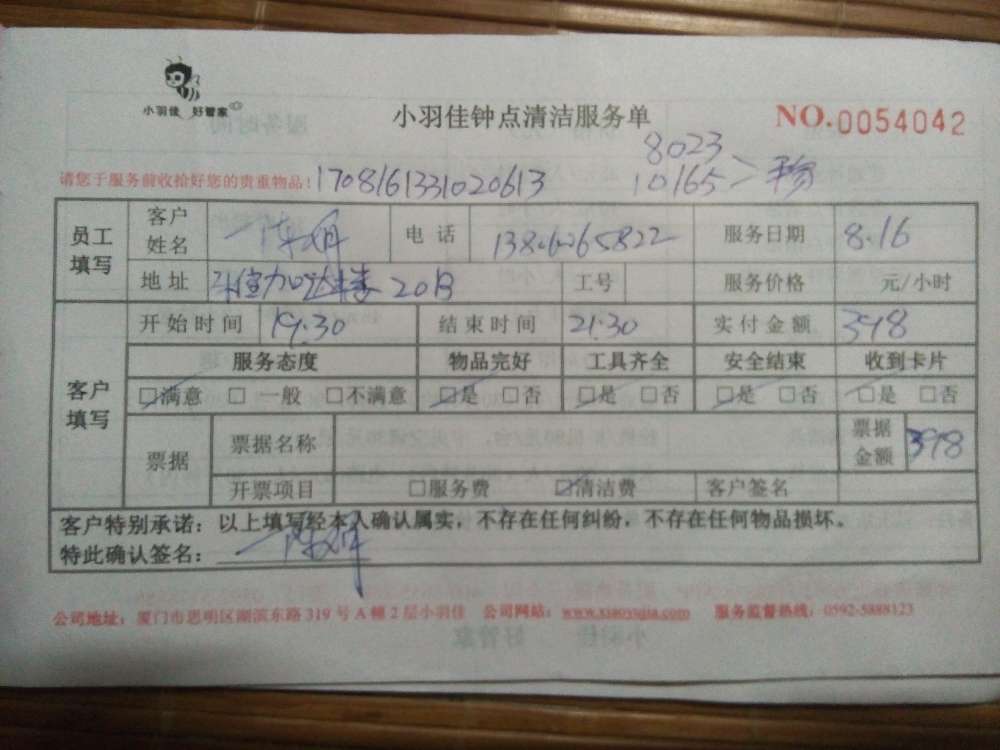 小羽佳 好管家
小羽佳钟点清洁服务单
NO.0054042
8023
请您于服务前收拾好您的贵重物品! 1708161331020613
10165
员工填写 客户姓名 电话 服务日期 8.16
地址 20B 工号 服务价格 元/小时
客户填写 开始时间 19:30 结束时间 21:30 实付金额 398
服务态度 物品完好 工具齐全 安全结束 收到卡片
☑满意 □一般 □不满意 ☑是 □否 ☑是 □否 ☑是 □否 ☑是 □否
票据 票据名称 票据金额 398
开票项目 □服务费 ☑清洁费 客户签名
客户特别承诺:以上填写经本人确认属实,不存在任何纠纷,不存在任何物品损坏。
特此确认签名:
公司地址:厦门市思明区湖滨东路319号A幢2层小羽佳 公司网站:www.xiaoyujia.com 服务监督热线:0592-5888123